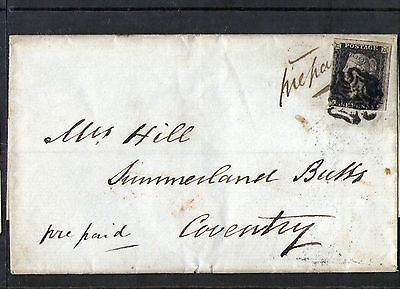 prepa
POSTAGE
Mrs Hill
Summerland Butts
Coventry
pre paid